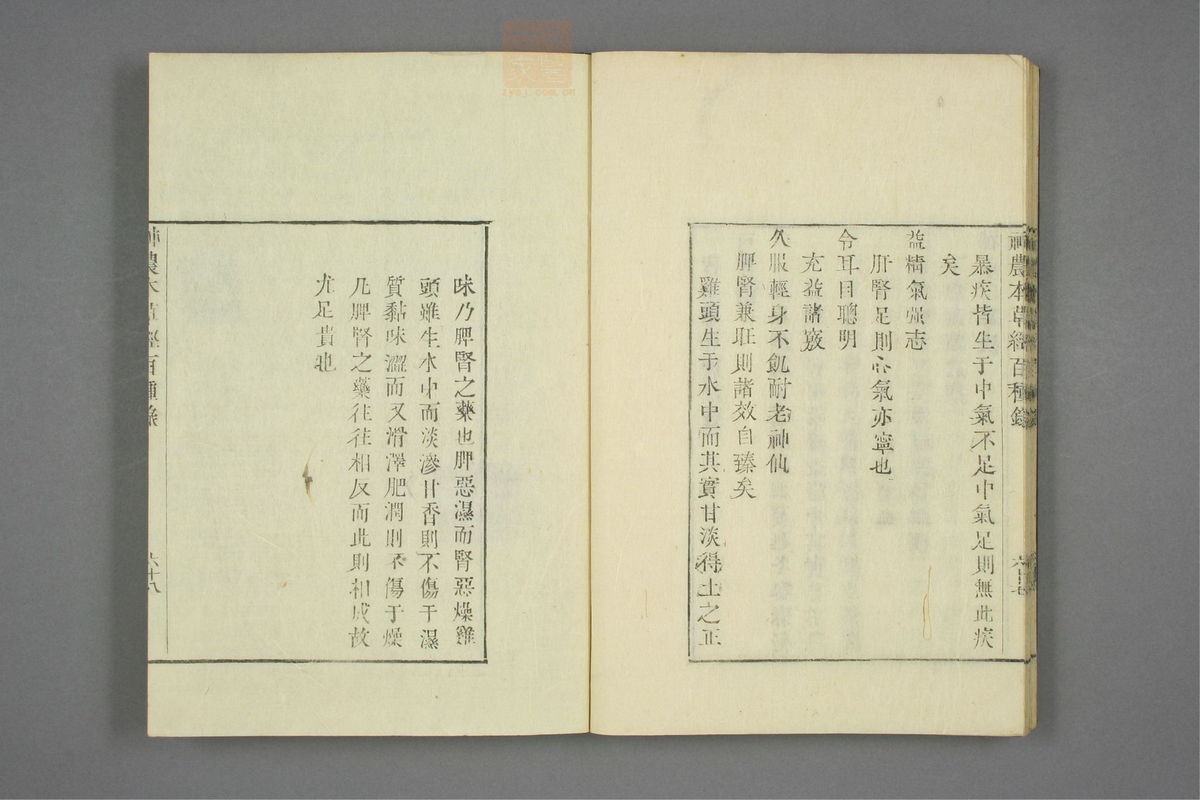 神農本草經百種錄
暴疾皆生于中氣不足中氣足則無此疾
矣
益精氣強志
肝腎足則心氣亦寧也
令耳目聰明
充益諸竅
久服輕身不飢耐老神仙
脾腎兼旺則諸效自臻矣
雞頭生于水中而其實甘淡得土之正
味乃脾腎之藥也脾惡濕而腎惡燥雞
頭雖生水中而淡滲甘香則不傷于濕
質黏味澀而又滑澤肥潤則不傷于燥
凡脾腎之藥往往相反而此則相成故
尤足貴也
神農本草經百種錄
六十八
zyoj.com.cn